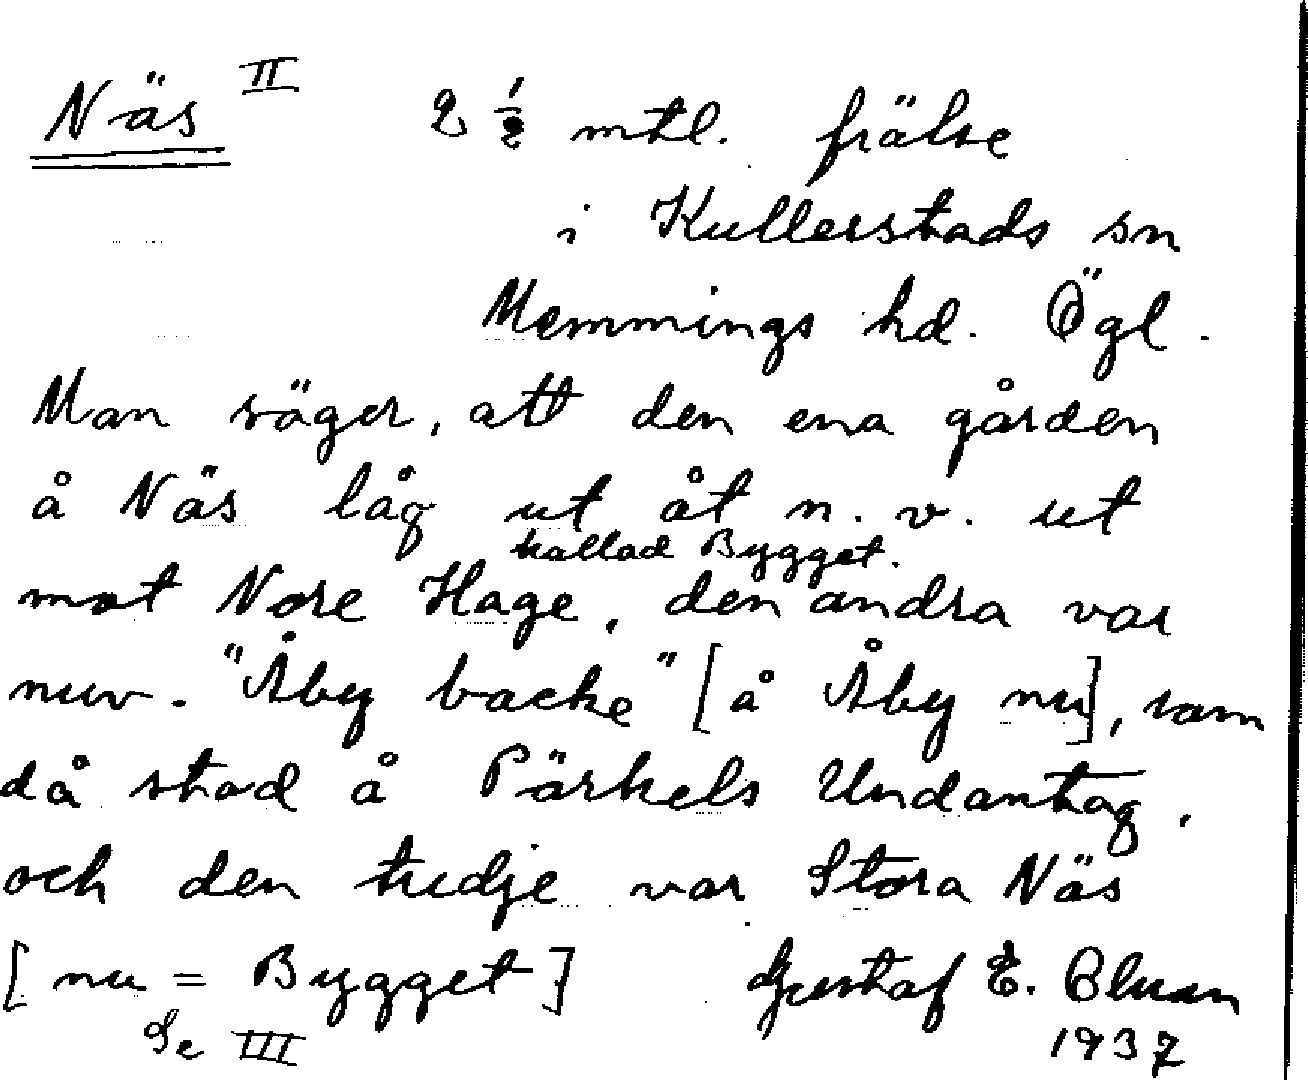 Näs II 2 1/2 mtl. frälse
i Kullerstads sn
Memmings hd. Ögl.
Man säger, att den ena gården
å Näs låg ut åt n. v. ut
kallad Bygget.
mot Nore Hage, den andra var
nuv. "Åby backe" [å Åby nu], som
då stod å Pärkels Undantag,
och den tredje var Stora Näs
[nu = Bygget] Gustaf E.
Se III 1937